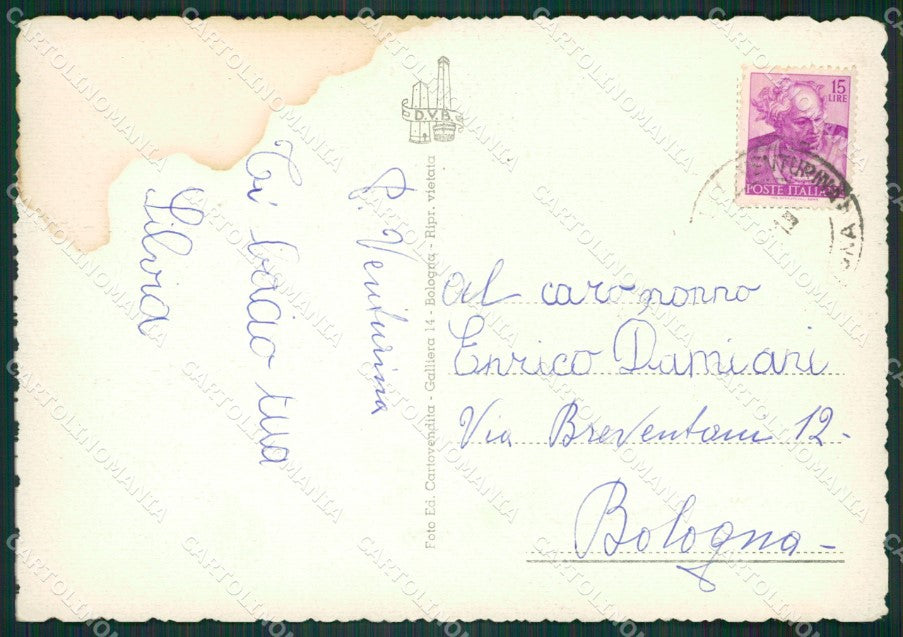 P. Venturina
Ti bacio tua
Silvia
D.V.B.
Foto Ed. Cartovendita - Galliera 14 - Bologna - Ripr. vietata
15
LIRE
POSTE ITALIANE
Al caro nonno
Enrico Damiani
Via Breventani 12-
Bologna-
CARTOLINOMANIA